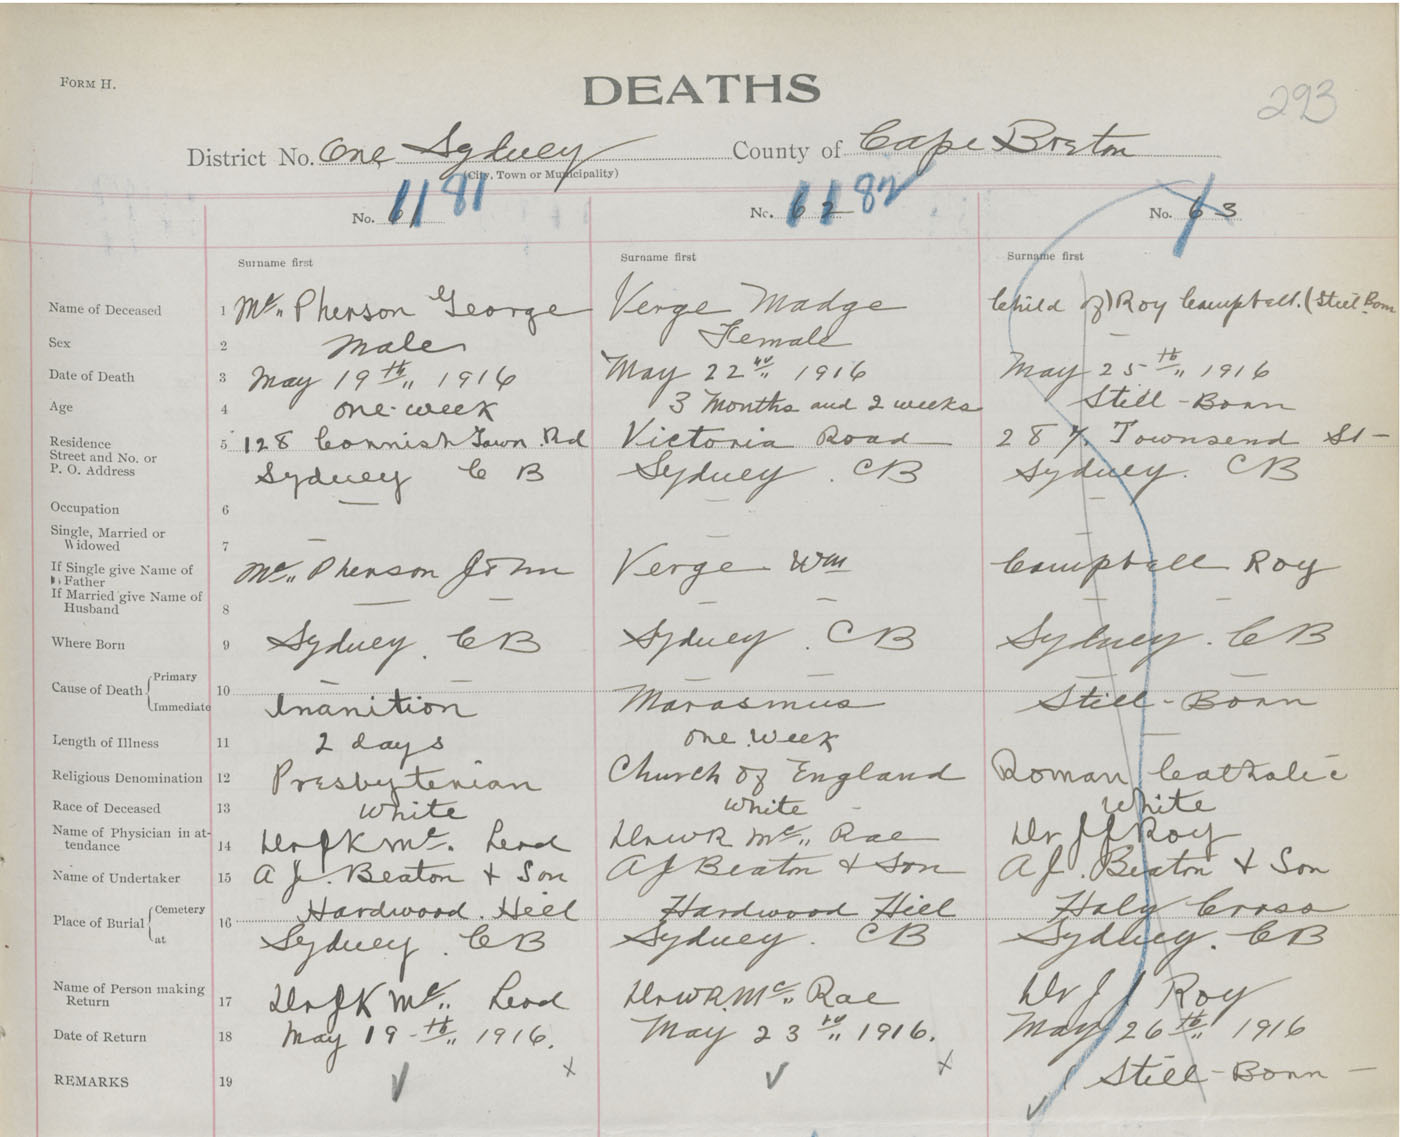 FORM H.
DEATHS
293
District No. One, Sydney County of Cape Breton
(City, Town or Municipality)
1181 1182
No. 61 No. 62 No. 63
Surname first Surname first Surname first
Name of Deceased 1 Mc,, Pherson George Verge Madge Child of Roy Campbell. (Still Born
Sex 2 Male Female —
Date of Death 3 May 19th,, 1916 May 22nd,, 1916 May 25th,, 1916
Age 4 one-week 3 Months and 2 weeks Still-Born
Residence 5 128 Cornish Town Rd Victoria Road 287 Townsend St-
Street and No. or
P. O. Address Sydney C B Sydney. CB Sydney. CB
Occupation 6 — — —
Single, Married or
Widowed 7 — — —
If Single give Name of
Father Mc,, Pherson John Verge Wm Campbell Roy
If Married give Name of
Husband 8 — — —
Where Born 9 Sydney. CB Sydney. CB Sydney. CB
Cause of Death Primary 10 — — —
Immediate Inanition Marasmus Still-Born
Length of Illness 11 2 days one week —
Religious Denomination 12 Presbyterian Church of England Roman Catholic
Race of Deceased 13 White White White
Name of Physician in at-
tendance 14 Dr J K Mc. Leod Dr W R Mc,, Rae Dr J J Roy
Name of Undertaker 15 A J. Beaton + Son A J Beaton + Son A J. Beaton + Son
Place of Burial Cemetery 16 Hardwood. Hill Hardwood Hill Holy Cross
at Sydney. CB Sydney. CB Sydney. CB
Name of Person making
Return 17 Dr J K Mc,, Leod Dr W R. Mc,, Rae Dr J J Roy
Date of Return 18 May 19-th,, 1916. May 23rd,, 1916. May 26th,, 1916
REMARKS 19 ✓ x ✓ x ✓ Still-Born —